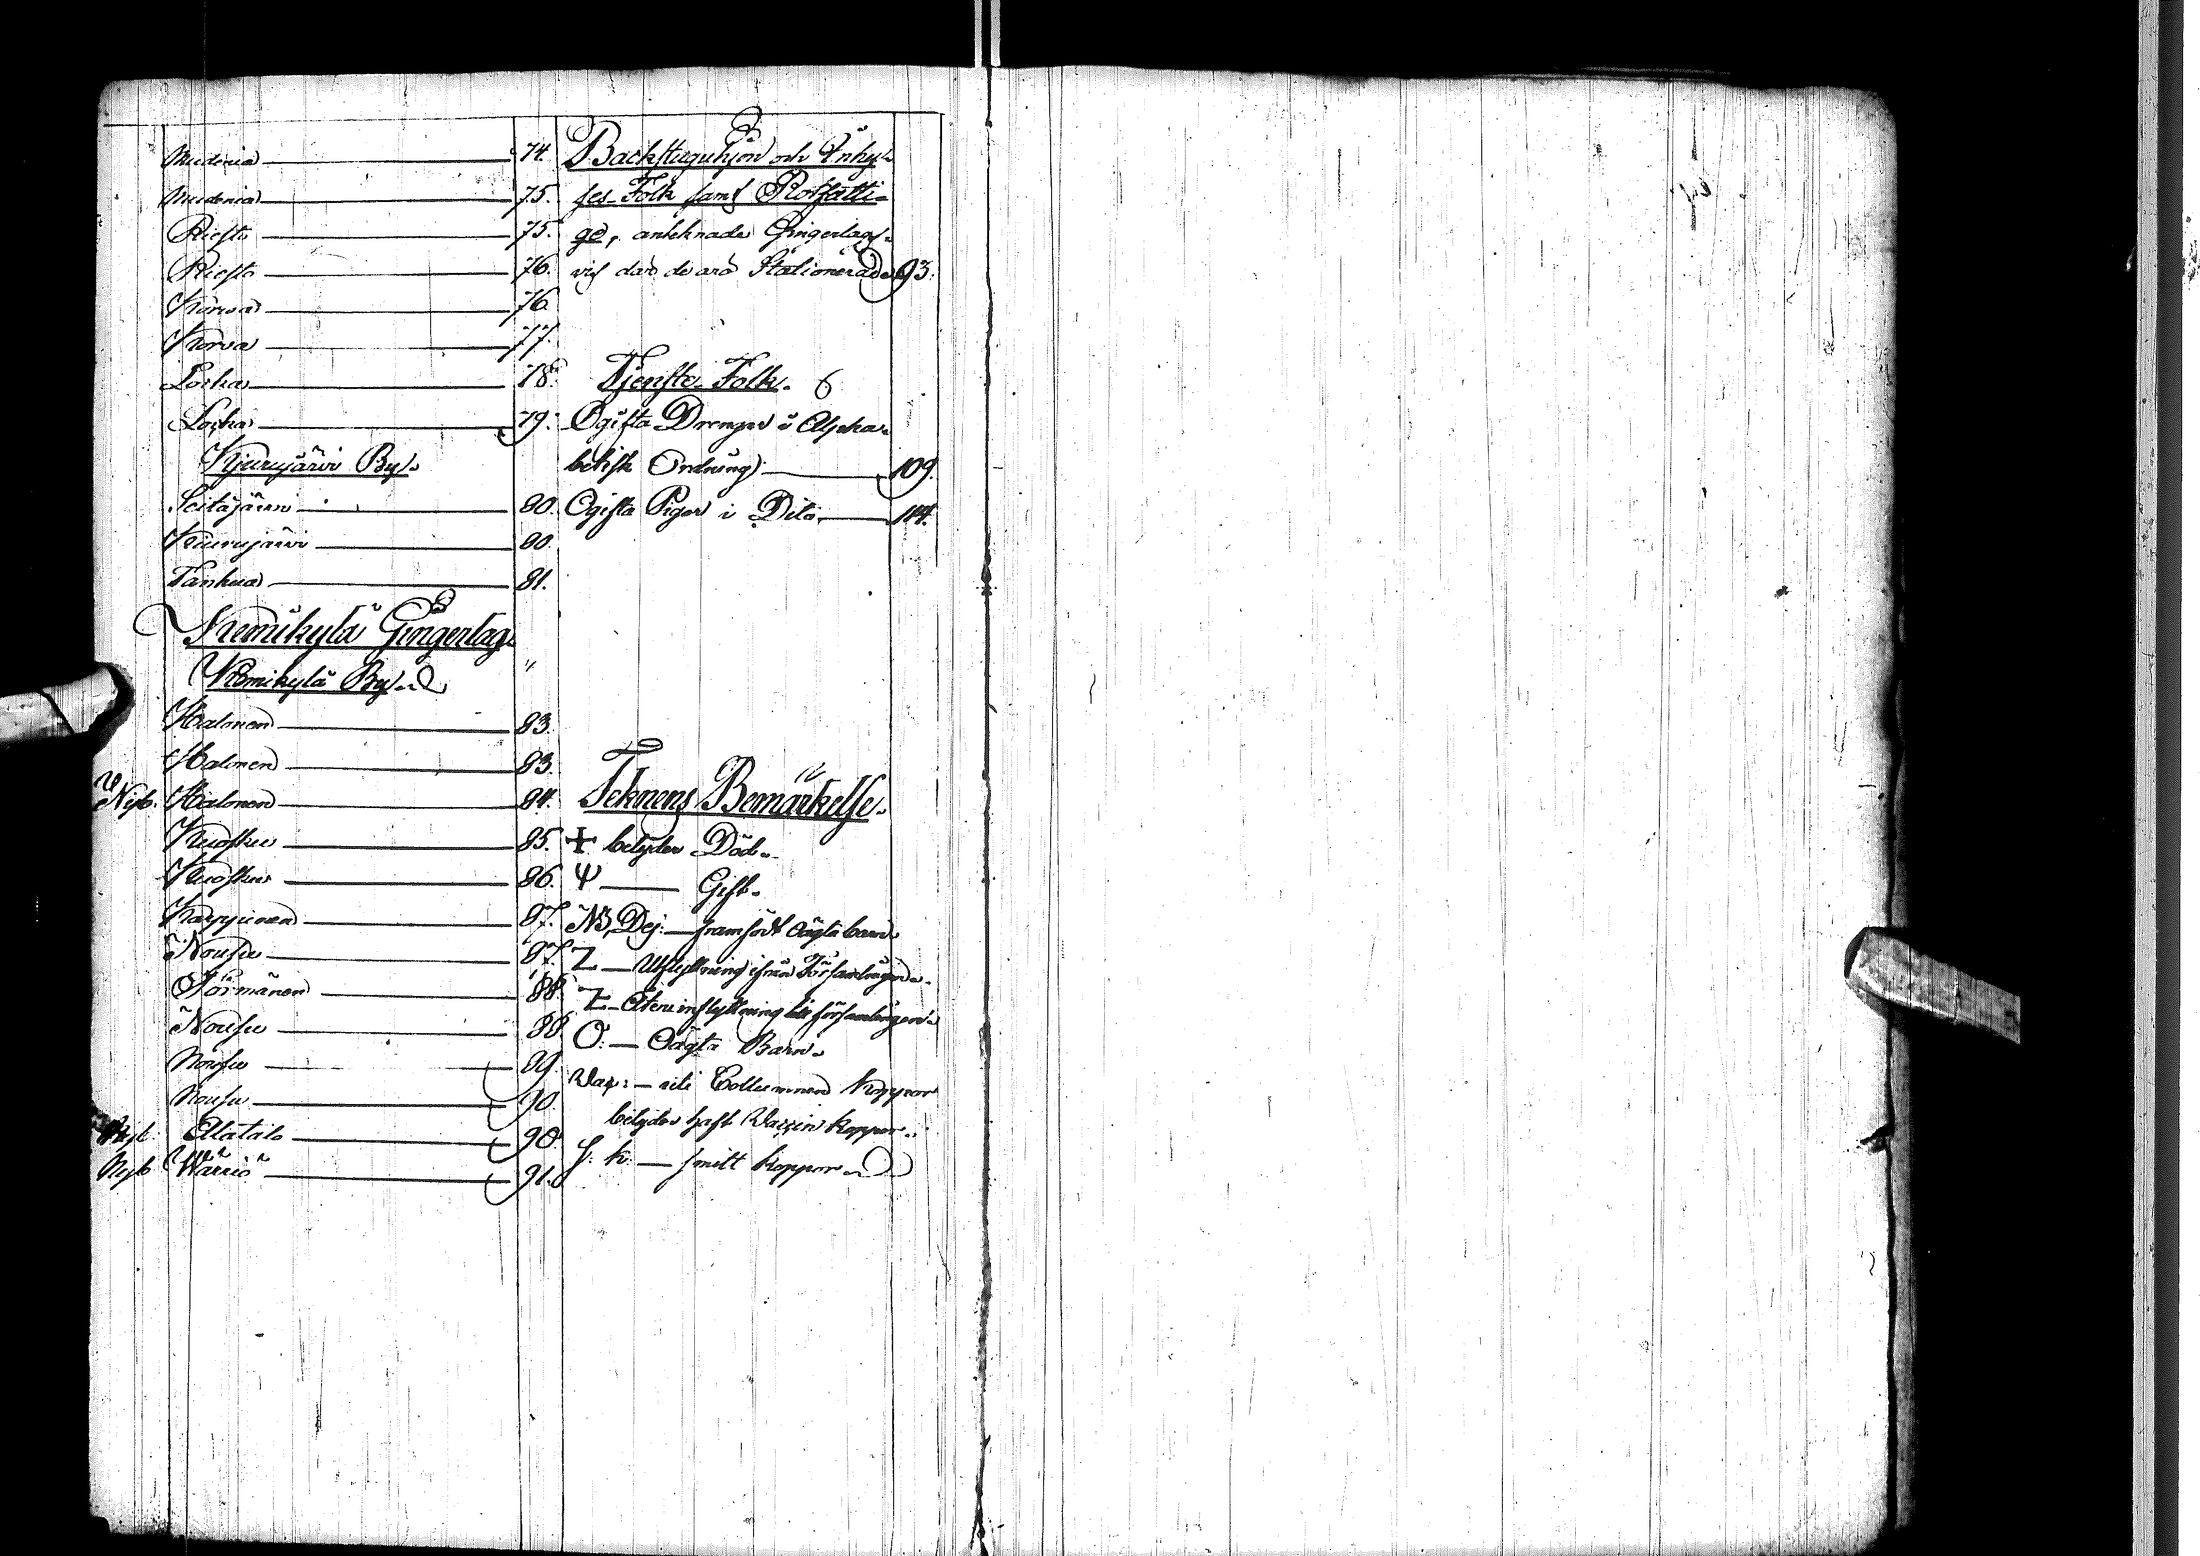 Mudenia 74.
Mudenia 75.
Riesto 75.
Riesto 76.
Korva 76
Korva 77.
Locka 78.
Locka 79.
Kjurujärvi By.
Seitajärvi 80.
Kiurujärvi 80.
Tanhua 81.
Kemikylä Gingerlag
Kemikylä By.
Halonen 83.
Halonen 83.
Nyb. Halonen 84.
Kuosku 85.
Kuosku 86.
Karppinen 87.
Nousu 87.
Törmänen 88.
Nousu 88
Nousu 89.
Nousu 90.
Nyb. Alatalo 90.
Nyb Wärriö 91.
Backstuguhjon och Inhy-
ses Folk samt Rotfatti-
ge, anteknade Gingerlags-
vis där de äro Stationerade 93.
Tjenste Folk.
Ogifta Drenger i Alpha-
betisk Ordning 109.
Ogifta Pigor i Dito 114.
Teknens Bemärkelse.
+ betyder Död.
Ψ — Gift.
NB, Dej: — framfödt Oägta barn
Z — Utflyttning ifrån Församlingen.
Z — Återinflyttning till församlingen.
O. — Oägta Barn.
Vax: — uti Collumnen Koppor
betyder haft Vaxin koppor.
S. k: — smitt koppor